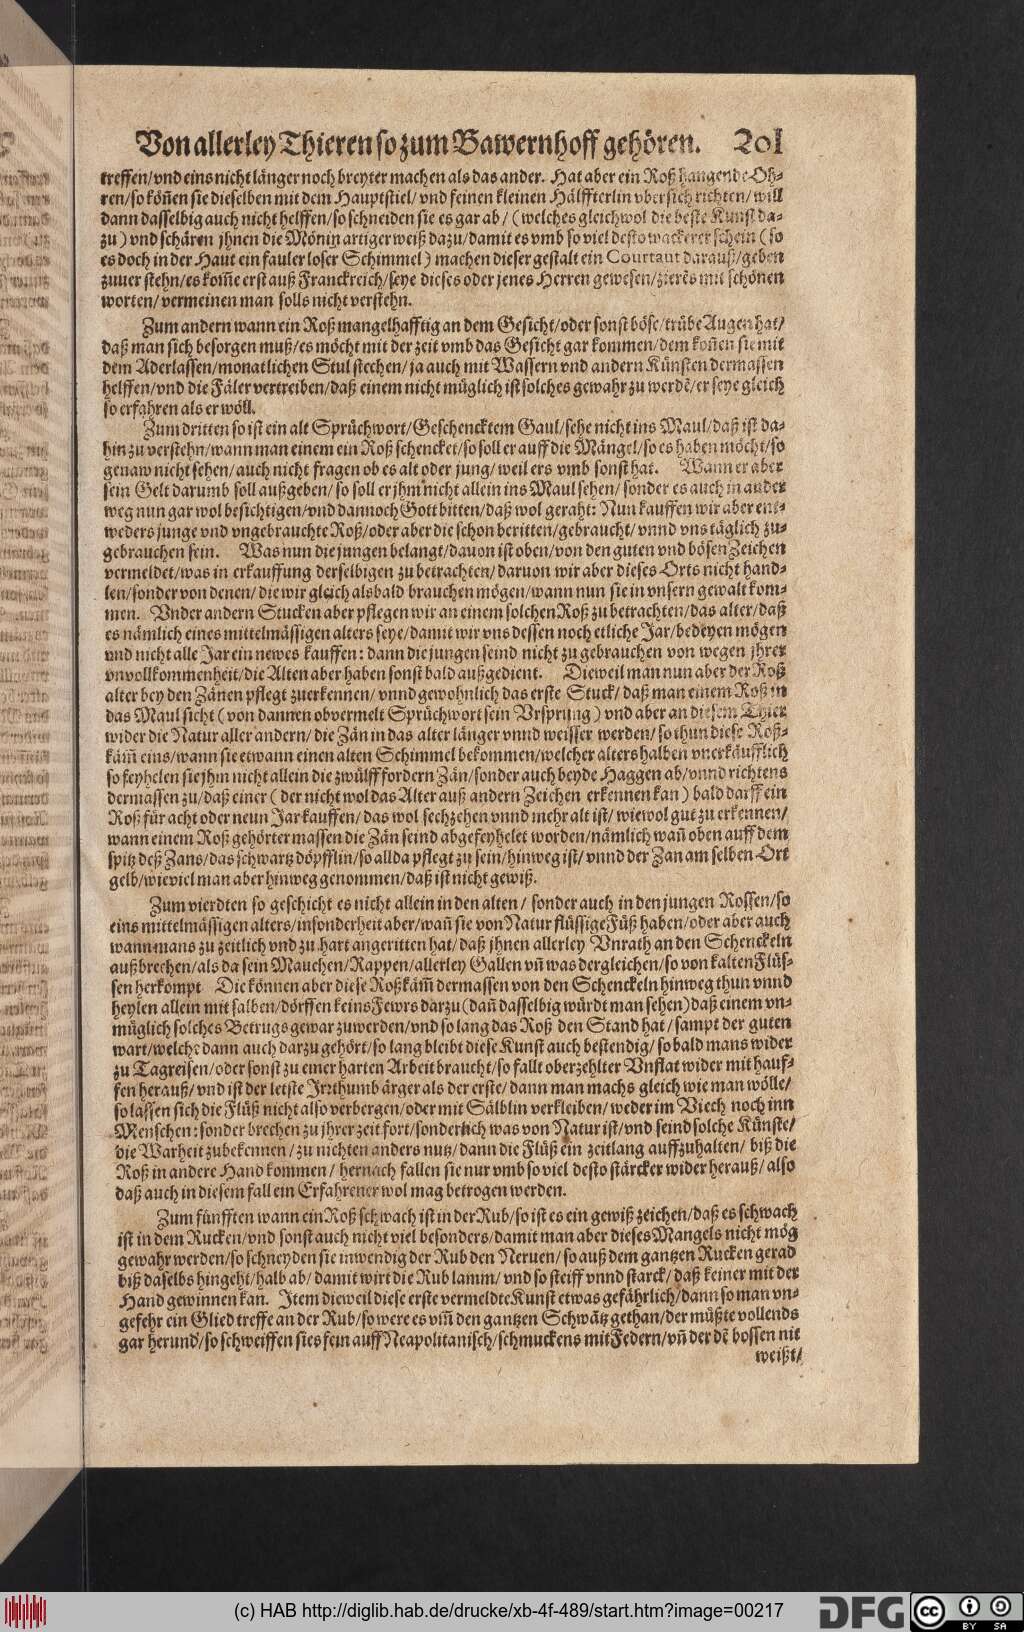 Von allerley Thieren so zum Bawernhoff gehören. 201
treffen/vnd eins nicht länger noch breyter machen als das ander. Hat aber ein Roß hangende Oh-
ren/so köñen sie dieselben mit dem Hauptstiel/ vnd seinen kleinen Hälffterlin vbersich richten/ will
dann dasselbig auch nicht helffen/so schneiden sie es gar ab/ (welches gleichwol die beste Kunst da-
zu) vnd schären jhnen die Mönin artiger weiß dazu/damit es vmb so viel desto wackerer schein (so
es doch in der Haut ein fauler loser Schimmel) machen dieser gestalt ein Courtaut darauß/geben
zuuerstehn/es kom̃e erst auß Franckreich/seye dieses oder jenes Herren gewesen/zierẽs mit schönen
worten/ vermeinen man solls nicht verstehn.
Zum andern wann ein Roß mangelhafftig an dem Gesicht/oder sonst böse/trübe Augen hat/
daß man sich besorgen muß/es möcht mit der zeit vmb das Gesicht gar kommen/dem koñen sie mit
dem Aderlassen/monatlichen Stul stechen/ ja auch mit Wassern vnd andern Künsten dermassen
helffen/vnd die Fäler vertreiben/daß einem nicht müglich ist solches gewahr zu werdẽ/er seye gleich
so erfahren als er wöll.
Zum dritten so ist ein alt Sprüchwort/Geschencktem Gaul/sehe nicht ins Maul/daß ist da-
hin zu verstehn/wann man einem ein Roß schencket/so soll er auff die Mängel/so es haben möcht/so
genaw nicht sehen/auch nicht fragen ob es alt oder jung/ weil ers vmb sonst hat. Wann er aber
sein Gelt darumb soll außgeben/ so soll er jhm nicht allein ins Maul sehen/ sonder es auch in ander
weg nun gar wol besichtigen/vnd dannoch Gott bitten/daß wol geraht: Nun kauffen wir aber ent-
weders junge vnd vngebrauchte Roß/oder aber die schon beritten/gebraucht/ vnnd vns täglich zu-
gebrauchen sein. Was nun die jungen belangt/dauon ist oben/von den guten vnd bösen Zeichen
vermeldet/was in erkauffung derselbigen zu betrachten/ daruon wir aber dieses Orts nicht hand-
len/sonder von denen/ die wir gleich alsbald brauchen mögen/wann nun sie in vnsern gewalt kom-
men. Vnder andern Stucken aber pflegen wir an einem solchen Roß zu betrachten/das alter/daß
es nämlich eines mittelmässigen alters seye/damit wir vns dessen noch etliche Jar/bedeyen mögen
vnd nicht alle Jar ein newes kauffen: dann die jungen seind nicht zu gebrauchen von wegen jhrer
vnvollkommenheit/die Alten aber haben sonst bald außgedient. Dieweil man nun aber der Roß
alter bey den Zänen pflegt zuerkennen/ vnnd gewohnlich das erste Stuck/ daß man einem Roß in
das Maul sicht (von dannen obvermelt Sprüchwort sein Vrsprung) vnd aber an diesem Thier
wider die Natur aller andern/ die Zän in das alter länger vnnd weisser werden/ so thun diese Roß-
käm̃ eins/wann sie etwann einen alten Schimmel bekommen/welcher alters halben vnerkäufflich
so feyhelen sie jhm nicht allein die zwülff fordern Zän/sonder auch beyde Haggen ab/vnnd richtens
dermassen zu/daß einer (der nicht wol das Alter auß andern Zeichen erkennen kan) bald darff ein
Roß für acht oder neun Jar kauffen/ das wol sechzehen vnnd mehr alt ist/ wiewol gut zu erkennen/
wann einem Roß gehörter massen die Zän seind abgefeyhelet worden/nämlich wañ oben auff dem
spitz deß Zans/das schwartz döpfflin/so allda pflegt zu sein/hinweg ist/ vnnd der Zan am selben Ort
gelb/wieviel man aber hinweg genommen/daß ist nicht gewiß.
Zum vierdten so geschicht es nicht allein in den alten/ sonder auch in den jungen Rossen/so
eins mittelmässigen alters/insonderheit aber/wañ sie von Natur flüssige Füß haben/oder aber auch
wannmans zu zeitlich vnd zu hart angeritten hat/daß jhnen allerley Vnrath an den Schenckeln
außbrechen/als da sein Mauchen/Rappen/allerley Gallen vñ was dergleichen/so von kalten Flüs-
sen herkompt Die können aber diese Roßkäm̃ dermassen von den Schenckeln hinweg thun vnnd
heylen allein mit salben/dörffen keins Fewrs darzu (dañ dasselbig würdt man sehen) daß einem vn-
müglich solches Betrugs gewar zuwerden/vnd so lang das Roß den Stand hat/sampt der guten
wart/welche dann auch darzu gehört/so lang bleibt diese Kunst auch bestendig/so bald mans wider
zu Tagreisen/oder sonst zu einer harten Arbeit braucht/so fallt oberzehlter Vnflat wider mit hauf-
fen herauß/ vnd ist der letste Irrthumb ärger als der erste/ dann man machs gleich wie man wölle/
so lassen sich die Flüß nicht also verbergen/oder mit Sälblin verkleiben/ weder im Viech noch inn
Menschen: sonder brechen zu jhrer zeit fort/sonderlich was von Natur ist/vnd seind solche Künste/
die Warheit zubekennen/zu nichten anders nutz/dann die Flüß ein zeitlang auffzuhalten/ biß die
Roß in andere Hand kommen/ hernach fallen sie nur vmb so viel desto stärcker wider herauß/ also
daß auch in diesem fall ein Erfahrener wol mag betrogen werden.
Zum fünfften wann ein Roß schwach ist in der Rub/so ist es ein gewiß zeichen/daß es schwach
ist in dem Rucken/vnd sonst auch nicht viel besonders/damit man aber dieses Mangels nicht mög
gewahr werden/so schneyden sie inwendig der Rub den Neruen/so auß dem gantzen Rucken gerad
biß daselbs hingeht/halb ab/ damit wirt die Rub lamm/ vnd so steiff vnnd starck/ daß keiner mit der
Hand gewinnen kan. Item dieweil diese erste vermeldte Kunst etwas gefährlich/dann so man vn-
gefehr ein Glied treffe an der Rub/so were es vm̃ den gantzen Schwãtz gethan/der müßte vollends
gar herund/so schweiffen sies fein auff Neapolitanisch/schmuckens mit Federn/vñ der dẽ bossen nit
weißt/
(c) HAB http://diglib.hab.de/drucke/xb-4f-489/start.htm?image=00217
DFG
cc
BY SA